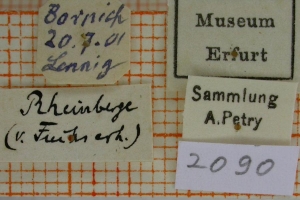 Bornich
20.7.01
Lennig
Museum
Erfurt
Rheinberge
(v. Fuchs erh.)
Sammlung
A. Petry
2090